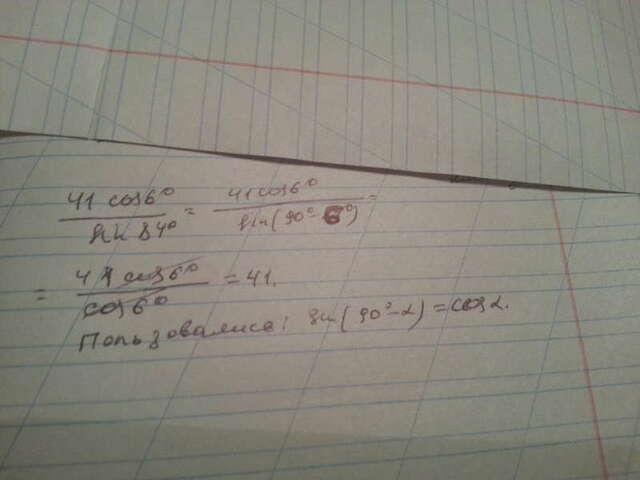 41 cos6° / sin 84° = 41cos6° / sin(90°-6°) =
= 41 cos6° / cos6° = 41.
Пользовались: sin(90°-α)=cosα.